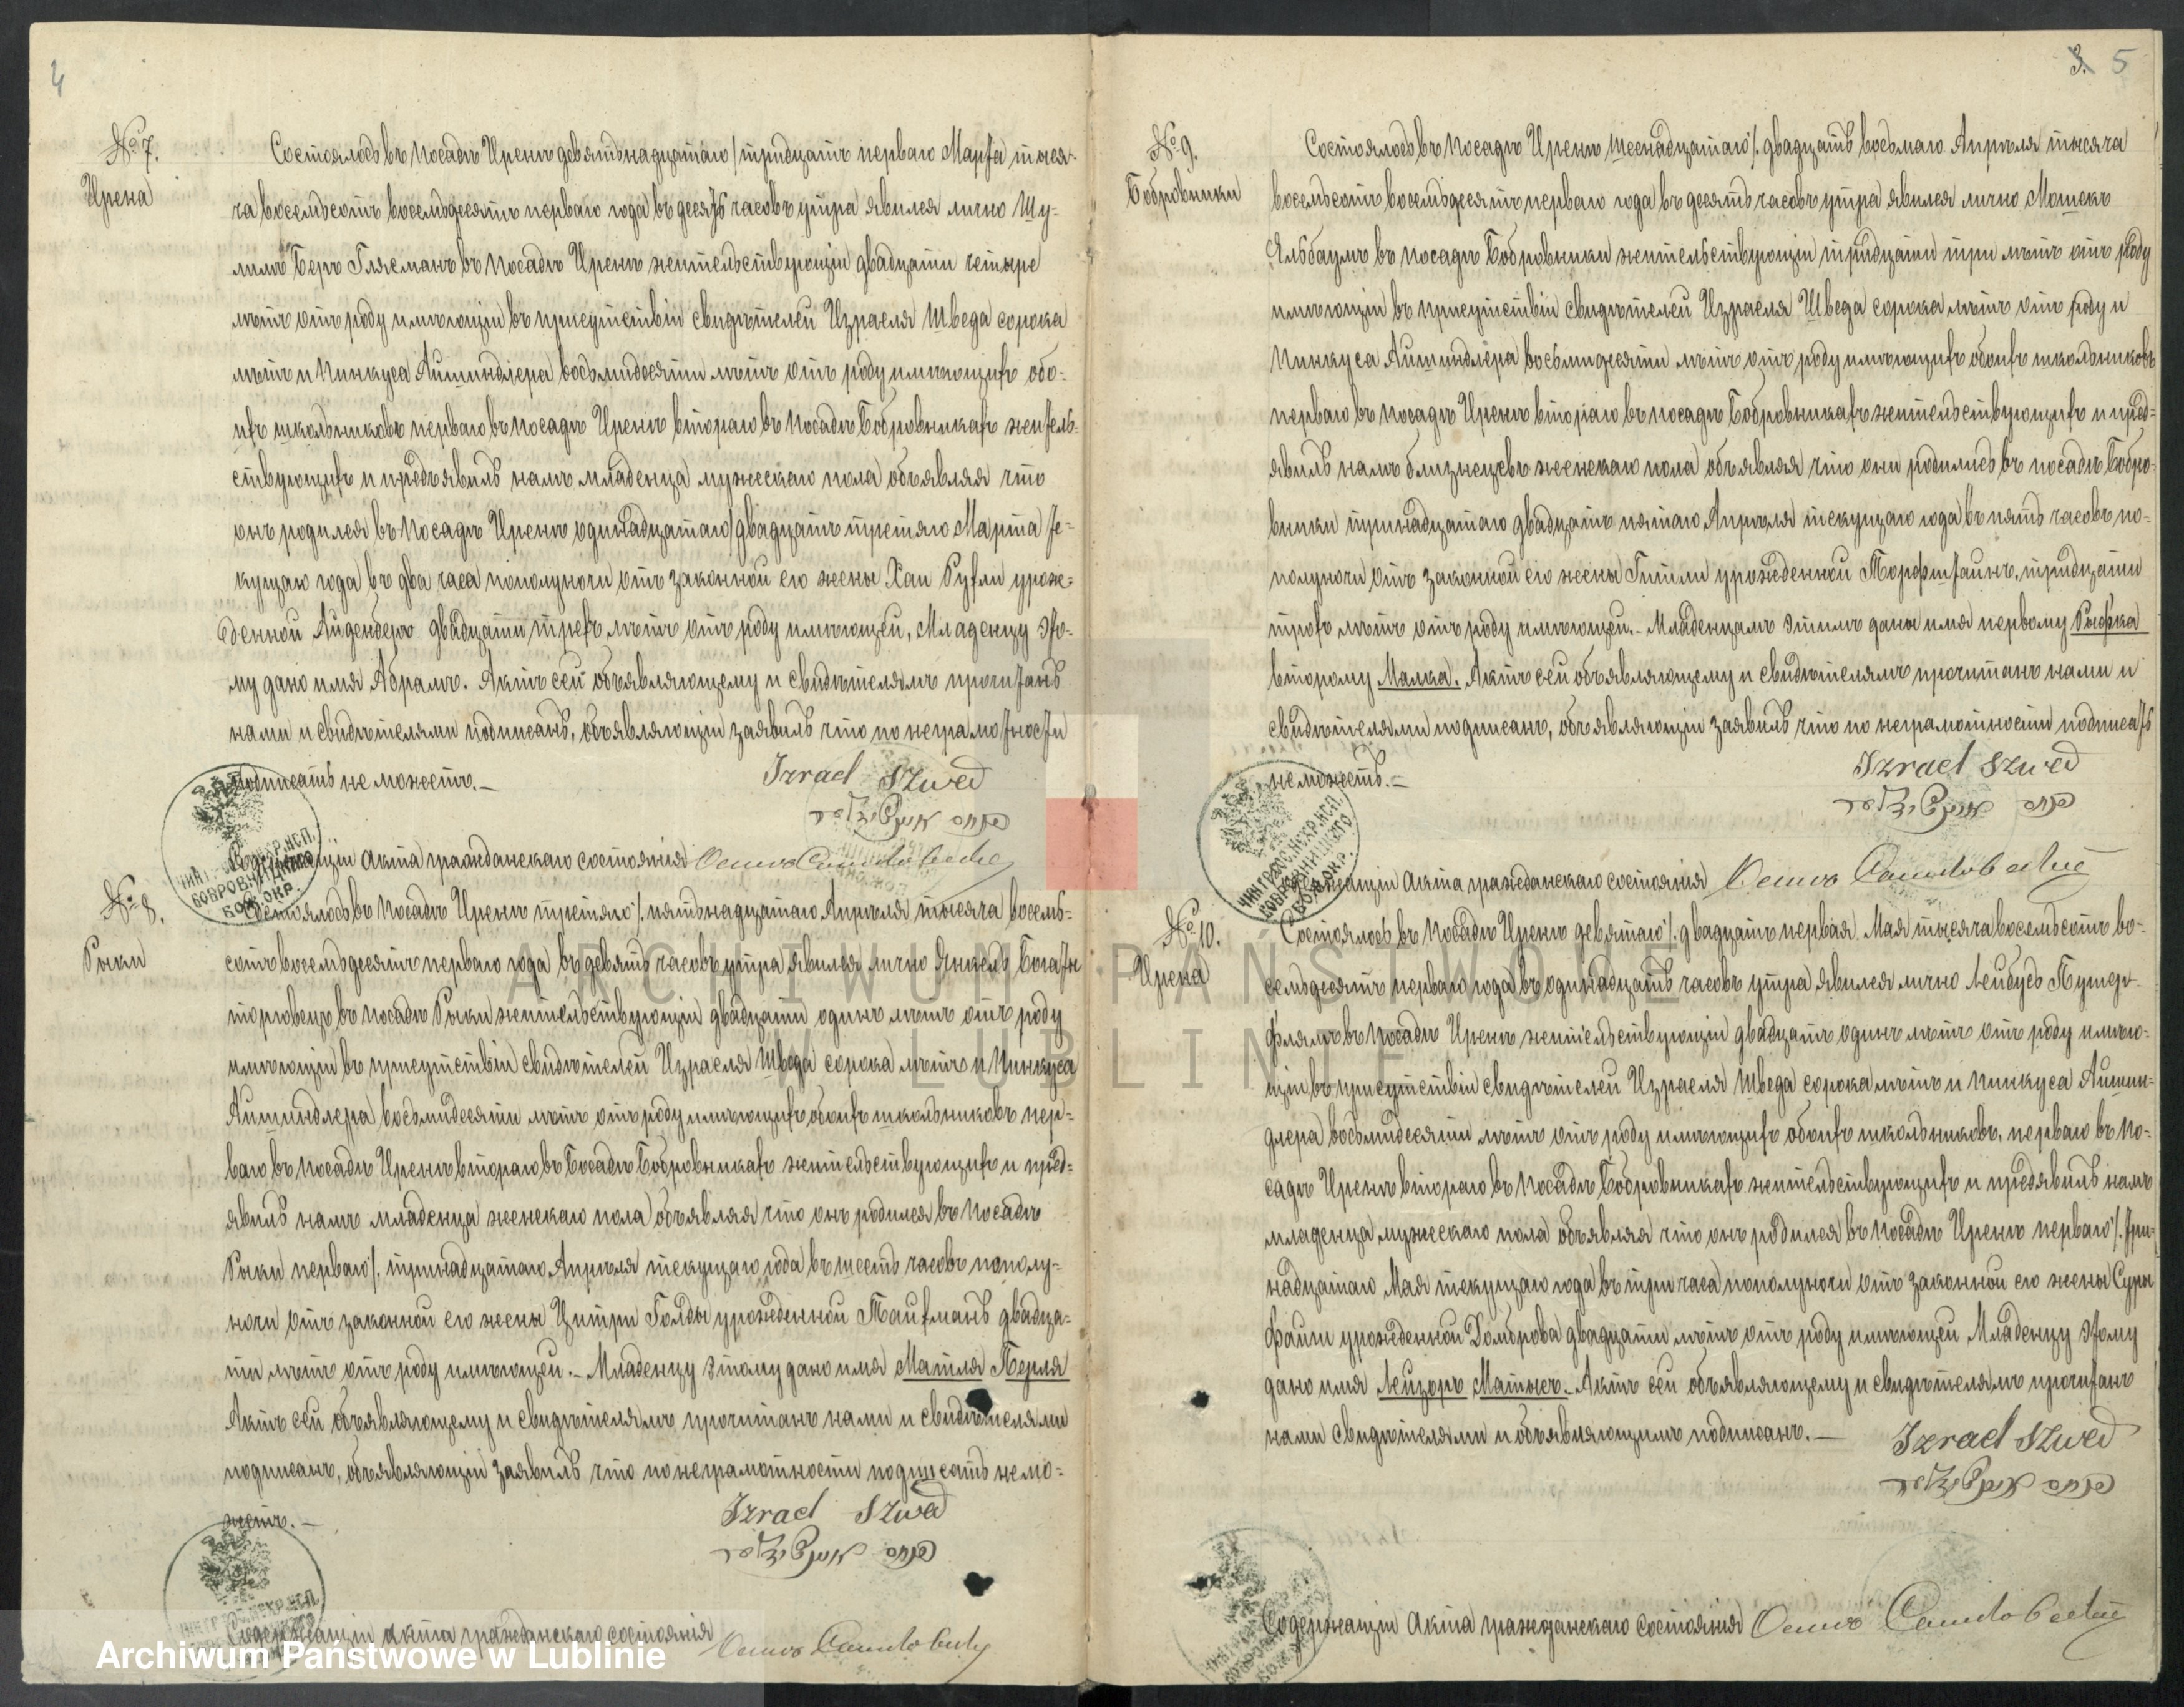 4
№ 7.
Ирена
Состоялось въ посадѣ Иренѣ девятьнадцатаго / тридцать перваго Марта тыся-
ча восемьсотъ восемьдесятъ перваго года въ десять часовъ утра явился лично Шу-
лимъ Беръ Глясманъ въ посадѣ Иренѣ жительствующій двадцати четыре
лѣтъ отъ роду имѣющій въ присутствіи свидѣтелей Израеля Шведа сорока
лѣтъ и Пинкуса Айшиндлера восьмидесяти лѣтъ отъ роду имѣющихъ обо-
ихъ школьниковъ перваго въ посадѣ Иренѣ втораго въ посадѣ Бобровникахъ житель-
ствующихъ и предъявилъ намъ младенца мужескаго пола объявляя что
онъ родился въ посадѣ Иренѣ одинадцатаго / двадцать третяго Марта те-
кущаго года въ два часа пополуночи отъ законной его жены Хаи Рухли урож-
денной Айденберъ двадцати трехъ лѣтъ отъ роду имѣющей, Младенцу это-
му дано имя Абрамъ. Актъ сей объявляющему и свидѣтелямъ прочитанъ
нами и свидѣтелями подписанъ, объявляющій заявилъ что по неграмотности
подписать не можетъ.—
Izrael Szwed
Содержащій Акта гражданскаго состоянія
№ 8.
Рыки
Состоялось въ посадѣ Иренѣ третяго /. пятьнадцатаго Апрѣля тысяча восемь-
сотъ восемьдесятъ перваго года въ девять часовъ утра явился лично Янкель Богаты
торговецъ въ посадѣ Рыки жительствующій двадцати одинъ лѣтъ отъ роду
имѣющій въ присутствіи свидѣтелей Израеля Шведа сорока лѣтъ и Пинкуса
Айшиндлера восьмидесяти лѣтъ отъ роду имѣющихъ обоихъ школьниковъ пер-
ваго въ посадѣ Иренѣ втораго въ Посадѣ Бобровникахъ жительствующихъ и пред-
явилъ намъ младенца женскаго пола объявляя что онъ родился въ посадѣ
Рыки перваго /. тринадцатаго Апрѣля текущаго года въ шесть часовъ пополу-
ночи отъ законной его жены Цитри Голды урожденной Тайхманъ двадца-
ти лѣтъ отъ роду имѣющей.— Младенцу этому дано имя Матля Перля
Актъ сей объявляющему и свидѣтелямъ прочитанъ нами и свидѣтелями
подписанъ, объявляющій заявилъ что по неграмотности подписать не мо-
жетъ.—
Izrael Szwed
Содержащій Акта гражданскаго состоянія
3. 5
№ 9.
Бобровники
Состоялось въ посадѣ Иренѣ шеснадцатаго /. двадцать восьмаго Апрѣля тысяча
восемьсотъ восемьдесятъ перваго года въ десять часовъ утра явился лично Мошекъ
Яльбаумъ въ посадѣ Бобровники жительствующій тридцати три лѣтъ отъ роду
имѣющій въ присутствіи свидѣтелей Израеля Шведа сорока лѣтъ отъ роду и
Пинкуса Айшиндлера восьмидесяти лѣтъ отъ роду имѣющихъ обоихъ школьниковъ
перваго въ посадѣ Иренѣ втораго въ посадѣ Бобровникахъ жительствующихъ и пред-
явилъ намъ близнецевъ женскаго пола объявляя что они родились въ посадѣ Бобро-
вники тринадцатаго двадцать пятаго Апрѣля текущаго года въ пять часовъ по-
полуночи отъ законной его жены Гитли урожденной Торфштайнъ, тридцати
трохъ лѣтъ отъ роду имѣющей.— Младенцамъ этимъ даны имя первому Рыфка
второму Малка. Актъ сей объявляющему и свидѣтелямъ прочитанъ нами и
свидѣтелями подписанъ, объявляющій заявилъ что по неграмотности подписать
не можетъ.—
Izrael Szwed
Содержащій Акта гражданскаго состоянія
№ 10.
Ирена
Состоялось въ посадѣ Иренѣ девятаго /. двадцать первая Мая тысяча восемьсотъ во-
семьдесятъ перваго года въ одинадцать часовъ утра явился лично Лейбусь Пушер-
флямъ въ посадѣ Иренѣ жительствующій двадцать одинъ лѣтъ отъ роду имѣю-
щій въ присутствіи свидѣтелей Израеля Шведа сорока лѣтъ и Пинкуса Айшин-
длера восьмидесяти лѣтъ отъ роду имѣющихъ обоихъ школьниковъ, перваго въ по-
садѣ Иренѣ втораго въ посадѣ Бобровникахъ жительствующихъ и предявилъ намъ
младенца мужескаго пола объявляя что онъ родился въ посадѣ Иренѣ перваго /. три-
надцатаго Мая текущаго года въ три часа пополуночи отъ законной его жены Суры
Файги урожденной Домброва двадцати лѣтъ отъ роду имѣющей Младенцу этому
дано имя Лейзоръ Матысъ. Актъ сей объявляющему и свидѣтелямъ прочитанъ
нами свидѣтелями и объявляющимъ подписанъ.—
Izrael Szwed
Содержащій Акта гражданскаго состоянія
ARCHIWUM PAŃSTWOWE
W LUBLINIE
Archiwum Państwowe w Lublinie